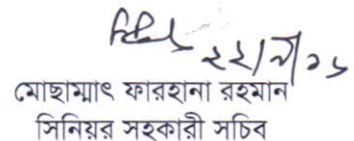 ২২/৭/১৬
মোছাম্মাৎ ফারহানা রহমান
সিনিয়র সহকারী সচিব